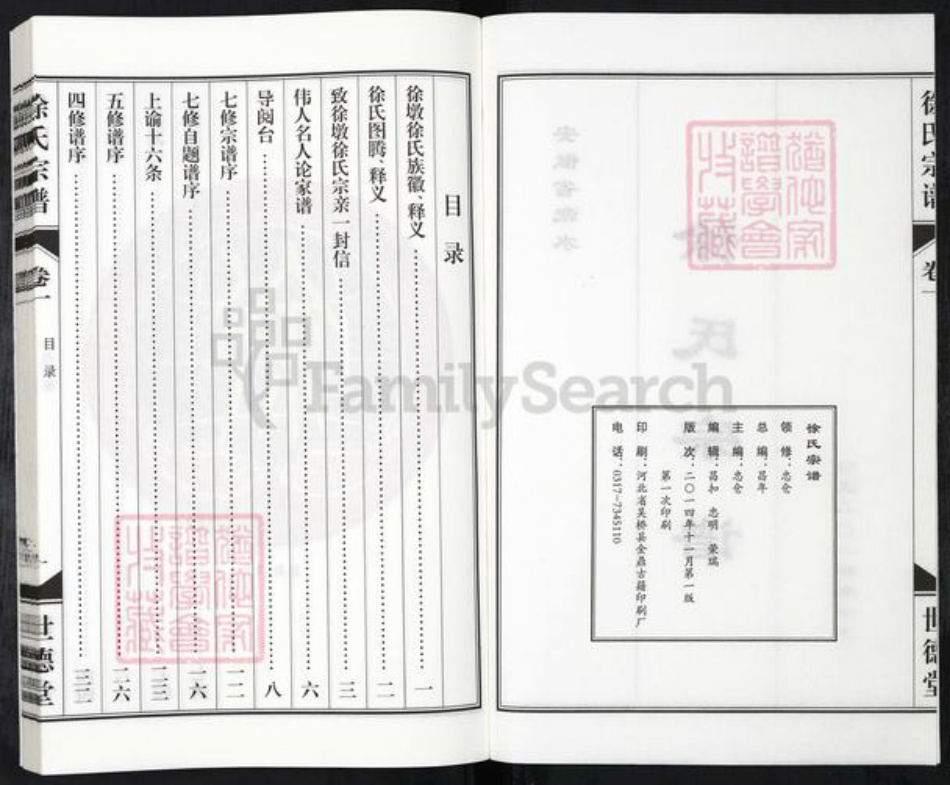 徐氏宗谱
卷一
世德堂
徐氏宗谱
领修：忠仓
总编：昌年
主编：忠仓
编辑：昌扣 忠明 荣瑞
版次：二〇一四年十一月第一版
第一次印刷
印刷：河北省吴桥县金鼎古籍印刷厂
电话：0317-7345110
FamilySearch
目录
徐墩徐氏族徽、释义……一
徐氏图腾、释义……二
致徐墩徐氏宗亲一封信……三
伟人名人论家谱……六
导阅台……八
七修宗谱序……一二
七修自题谱序……一六
上谕十六条……二三
五修谱序……二六
四修谱序……三二
徐氏宗谱
卷一
目录
一
世德堂